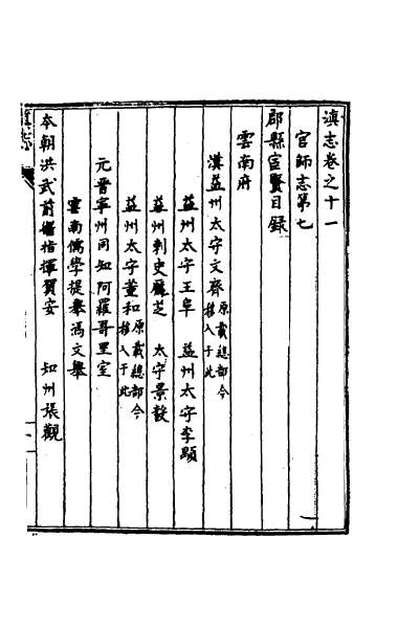 滇志卷之十一
官師志第七
郡縣宦賢目録
雲南府
漢益州太守文齊原載總部今移入于此
益州太守王阜 益州太守李顒
益州刺史龐芝 太守景毅
益州太守董和原載總部今移入于此
元晉寧州同知阿羅哥里室
雲南儒學提舉馮文舉
本朝洪武前衛指揮賀安 知州張觀
一